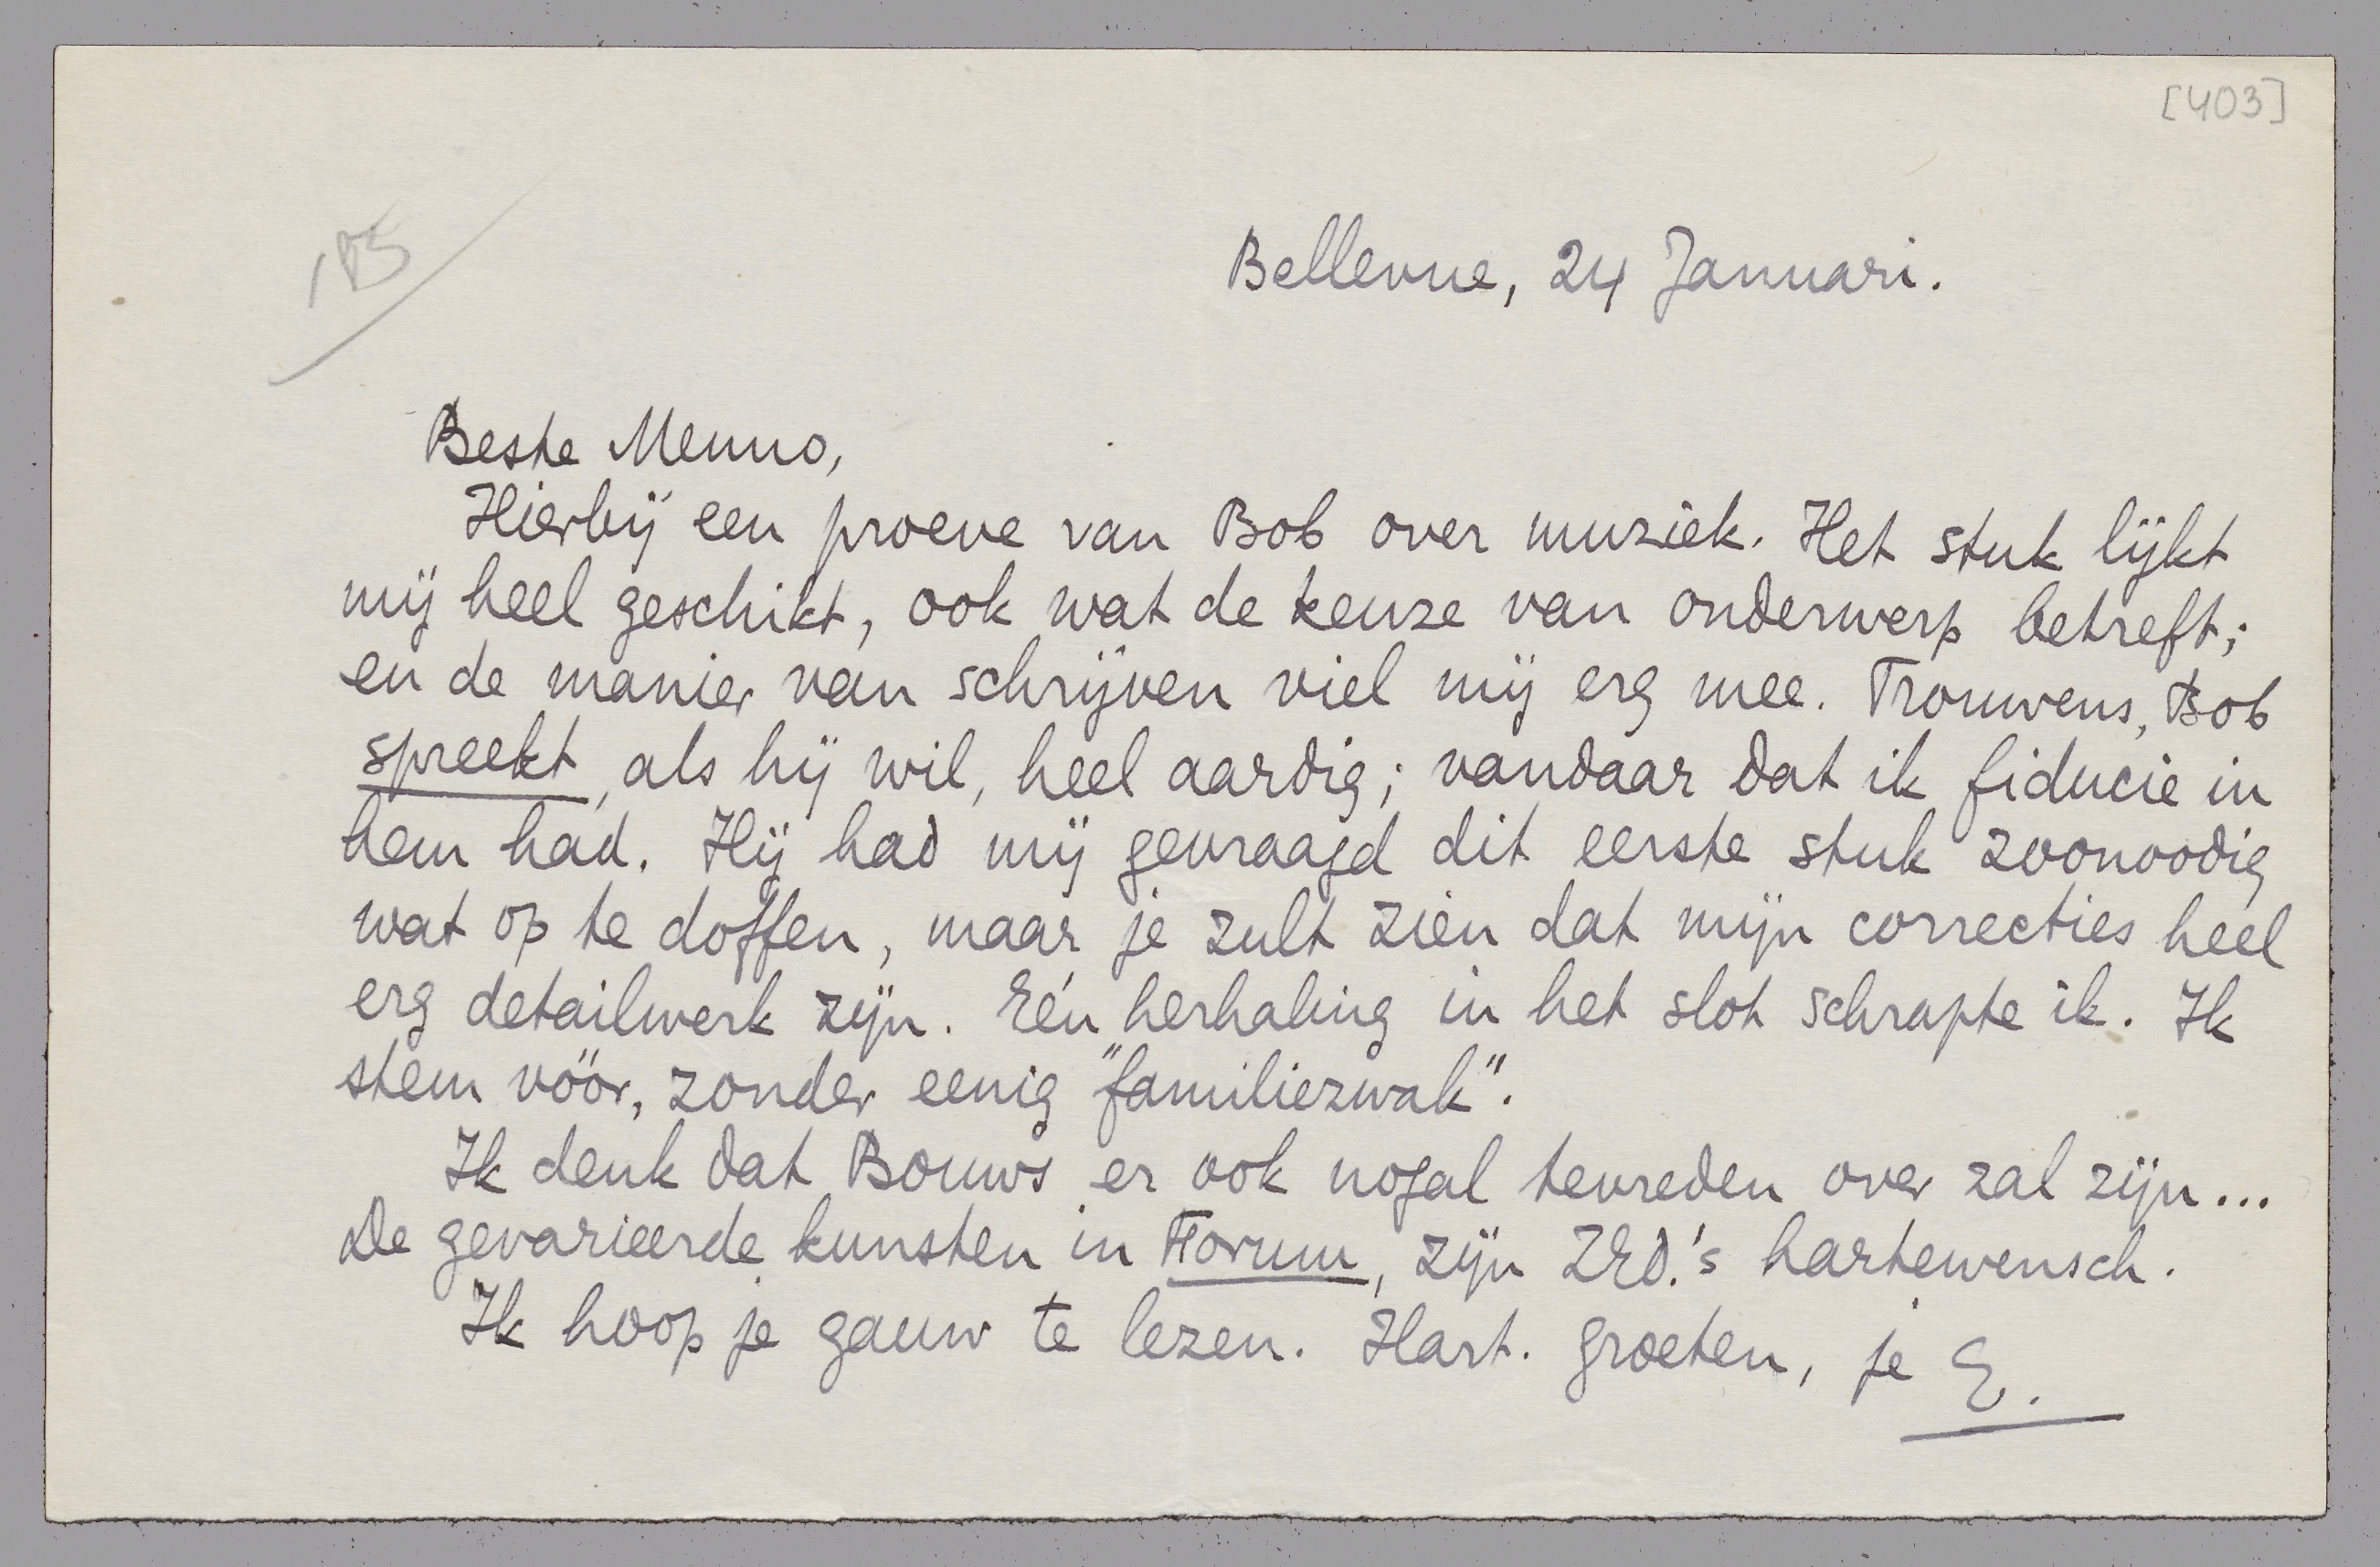 [403]
Bellevue, 24 Januari.
Beste Menno,
Hierbij een proeve van Bob over muziek. Het stuk lijkt
mij heel geschikt, ook wat de keuze van onderwerp betreft;
en de manier van schrijven viel mij erg mee. Trouwens, Bob
spreekt, als hij wil, heel aardig; vandaar dat ik fiducie in
hem had. Hij had mij gevraagd dit eerste stuk zoonoodig
wat op te doffen, maar je zult zien dat mijn correcties heel
erg detailwerk zijn. Eén herhaling in het slot schrapte ik. Ik
stem vóór, zonder eenig "familiezwak".
Ik denk dat Bouws er ook nogal tevreden over zal zijn...
De gevarieerde kunsten in Forum, zijn ZEd.'s hartewensch.
Ik hoop je gauw te lezen. Hart. groeten, je E.